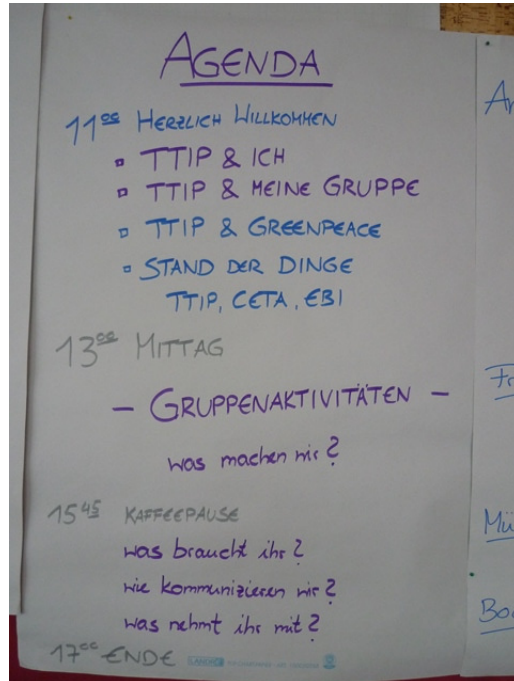 AGENDA
11⁰⁰ HERZLICH WILLKOMMEN
▫ TTIP & ICH
▫ TTIP & MEINE GRUPPE
▫ TTIP & GREENPEACE
▫ STAND DER DINGE
TTIP, CETA, EBI
13⁰⁰ MITTAG
– GRUPPENAKTIVITÄTEN –
was machen wir?
15⁴⁵ KAFFEEPAUSE
was braucht ihr?
wie kommunizieren wir?
was nehmt ihr mit?
17⁰⁰ ENDE